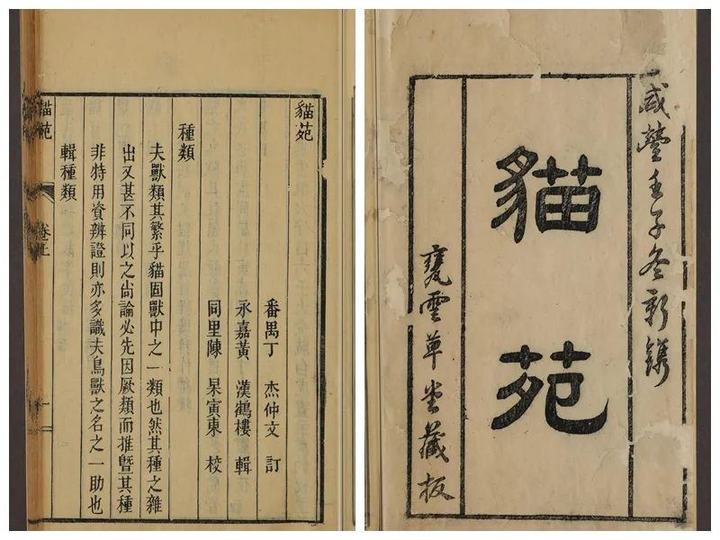 咸豐壬子冬新鐫
貓苑
甕雲草堂藏板
貓苑
番禺丁 杰仲文 訂
永嘉黃 漢鶴樓 輯
同里陳 杲寅東 校
種類
夫獸類其繁乎貓固獸中之一類也然其種之雜
出又甚不同以之尚論必先因厥類而推暨其種
非特用資辨證則亦多識夫鳥獸之名之一助也
輯種類
貓苑 卷上 一